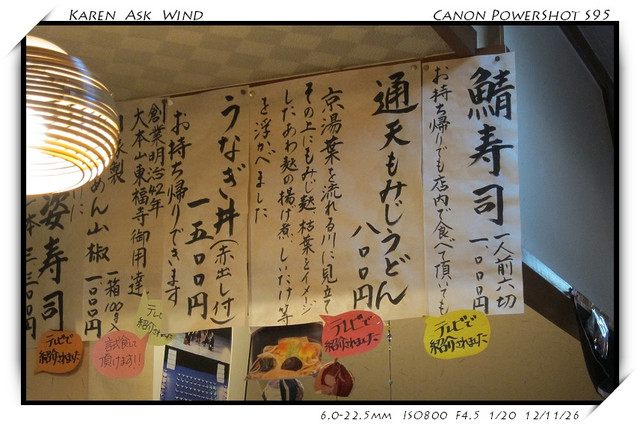 KAREN ASK WIND
CANON POWERSHOT S95
鯖寿司 一人前六切
一、〇〇〇円
お持ち帰りでも店内で食べて頂いても
通天もみじうどん
八〇〇円
京湯葉を流れる川に見立て
その上にもみじ麩、枯葉をイメージ
しだあわ麩の揚げ煮、しいたけ等
を浮かべました
うなぎ丼(赤出し付)
一、五〇〇円
お持ち帰りできます
創業明治42年
大本山東福寺御用達
めん山椒
一箱100g入
一、〇〇〇円
姿寿司
テレビで
紹介されました
試食して
頂けます!!
テレビで
テレビで
紹介されました
テレビで
紹介されました
6.0-22.5MM ISO800 F4.5 1/20 12/11/26